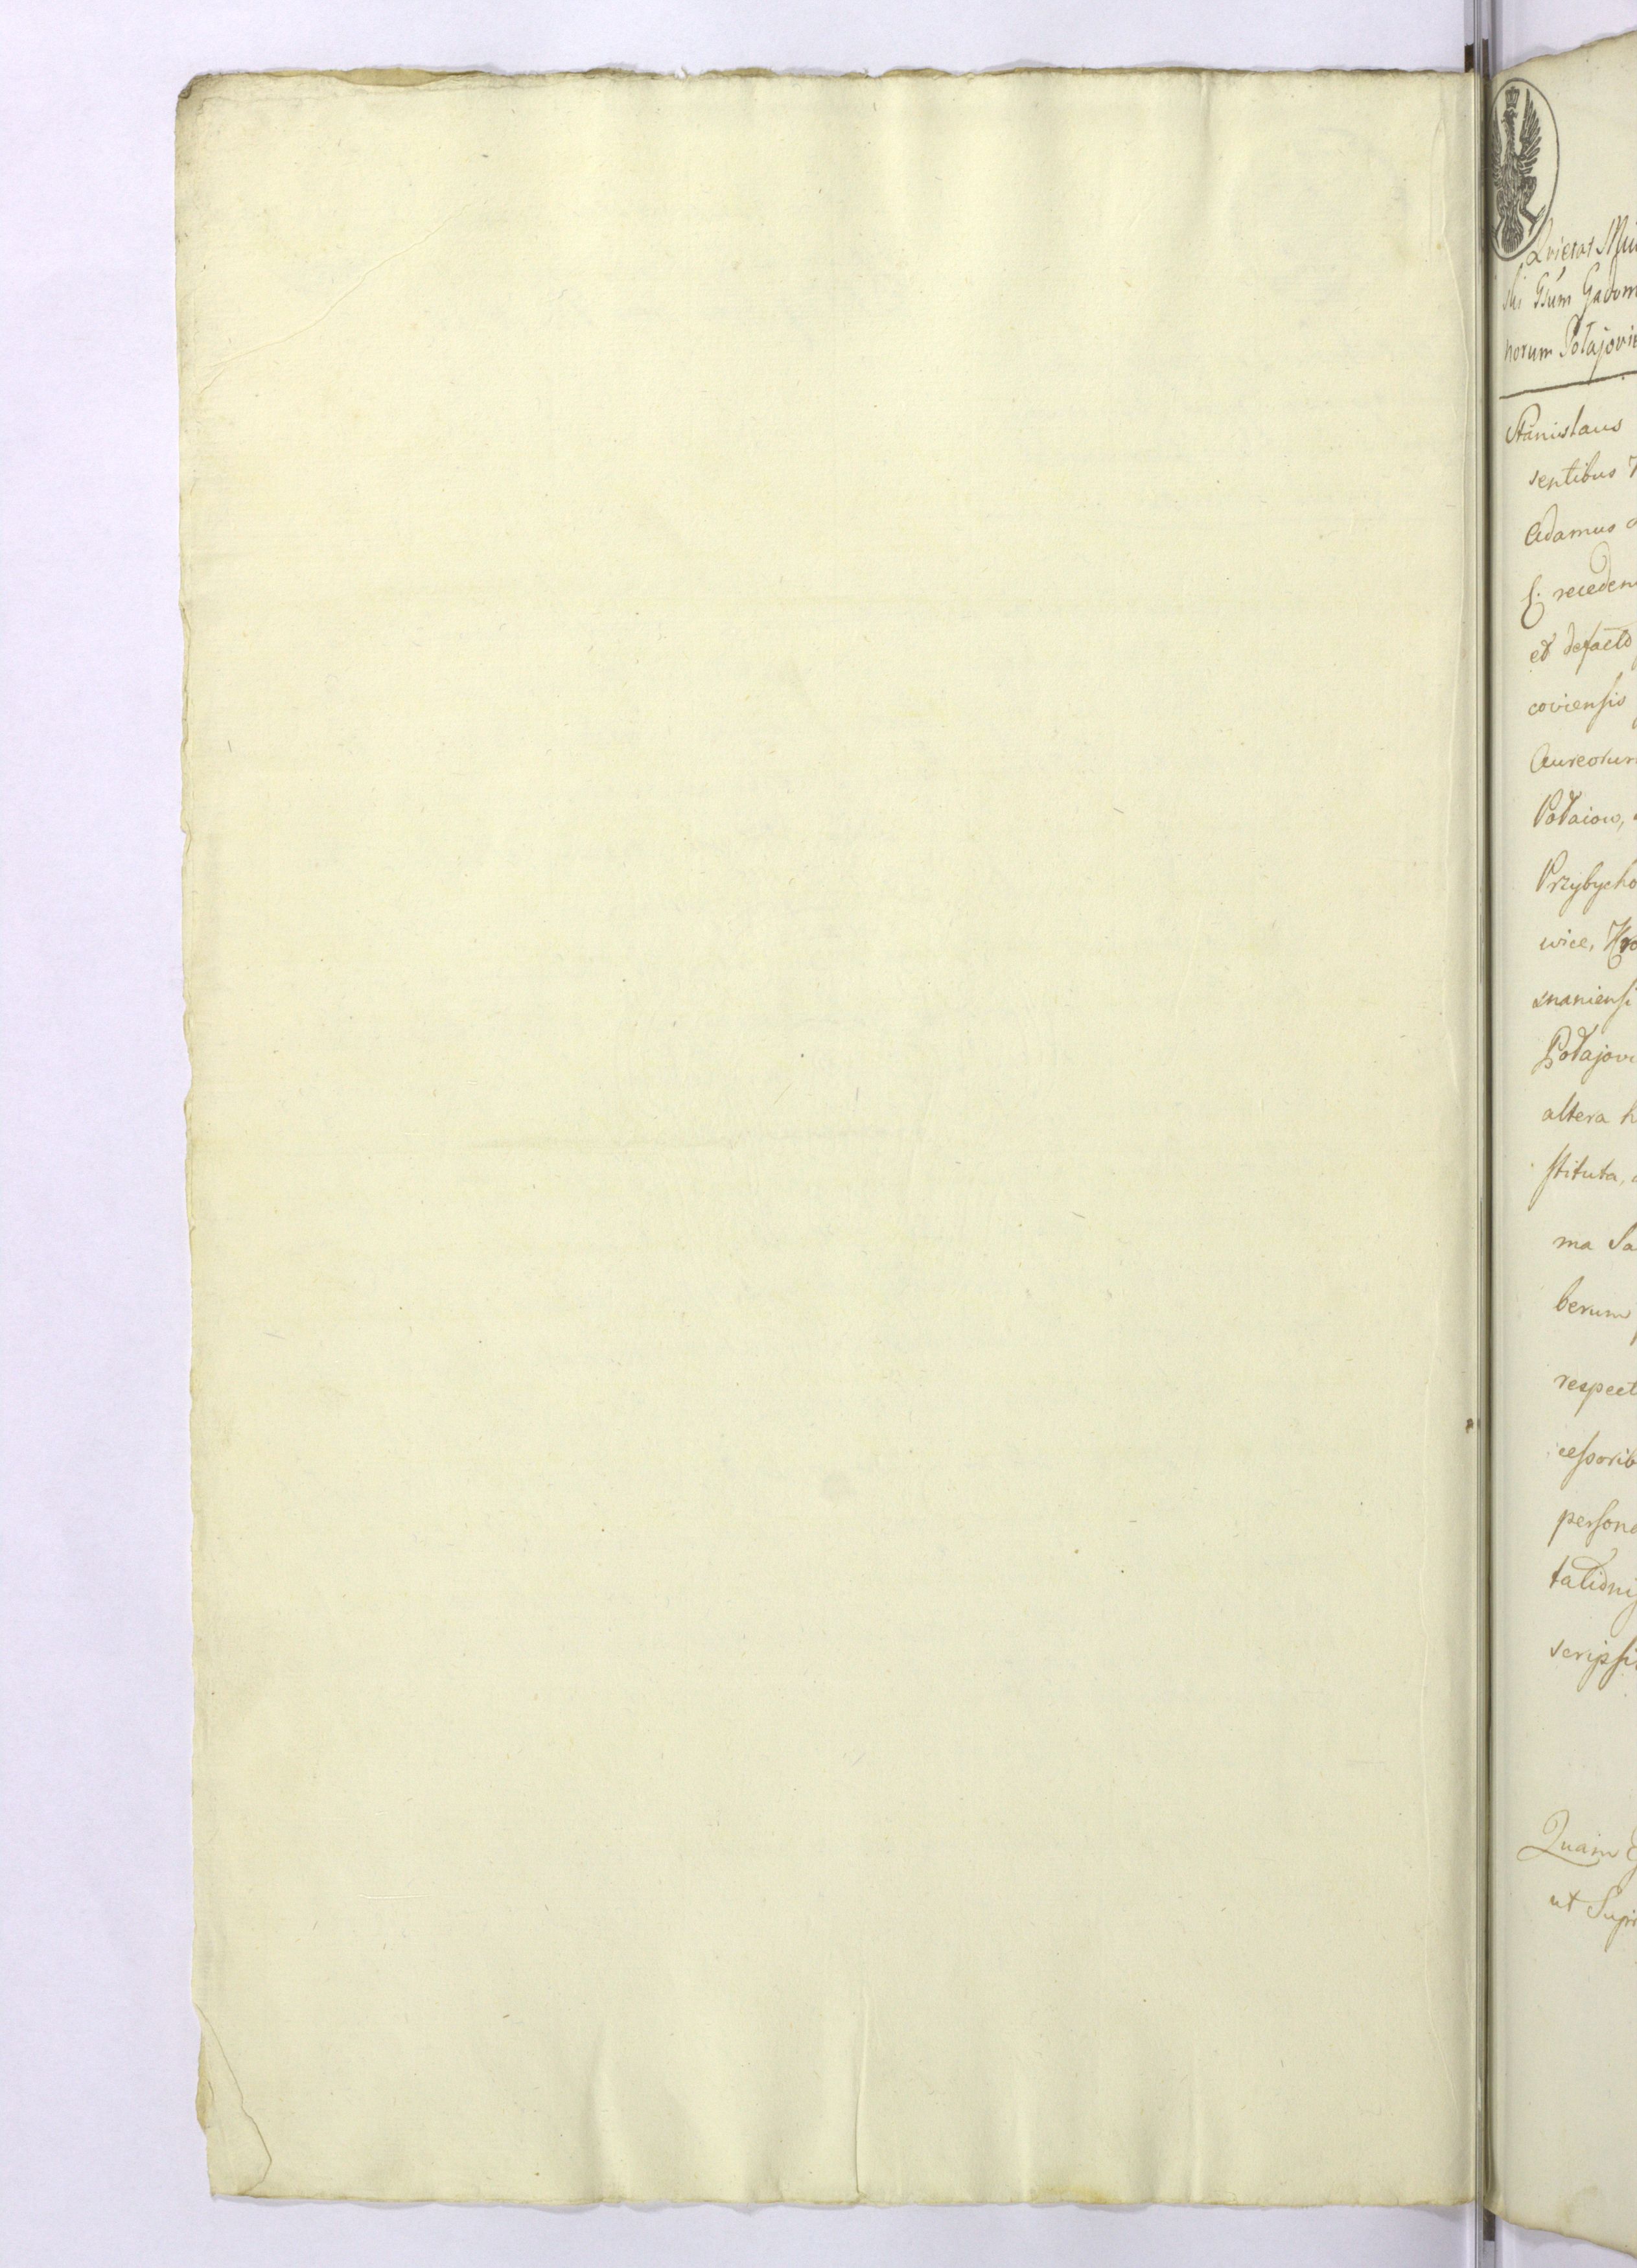 Quietat
Gsum Gadom
norum Połajovie
Stanislaus
sentibus
Adamus
recedem
et defacto
coviensis
Aureorum
Połaiow,
Przybycho
wice, Kro
znaniensi
Połajovi
altera h
stituta,
ma Sa
berum
respect
cessorib
persona
talidni
scripsi
Quam
ut Supr